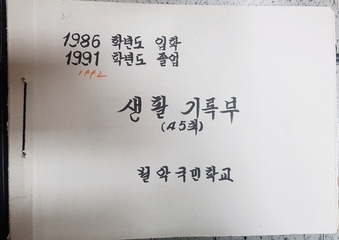 1986 학년도 입학
1991 학년도 졸업
1992
생활 기록부
(45회)
월악국민학교